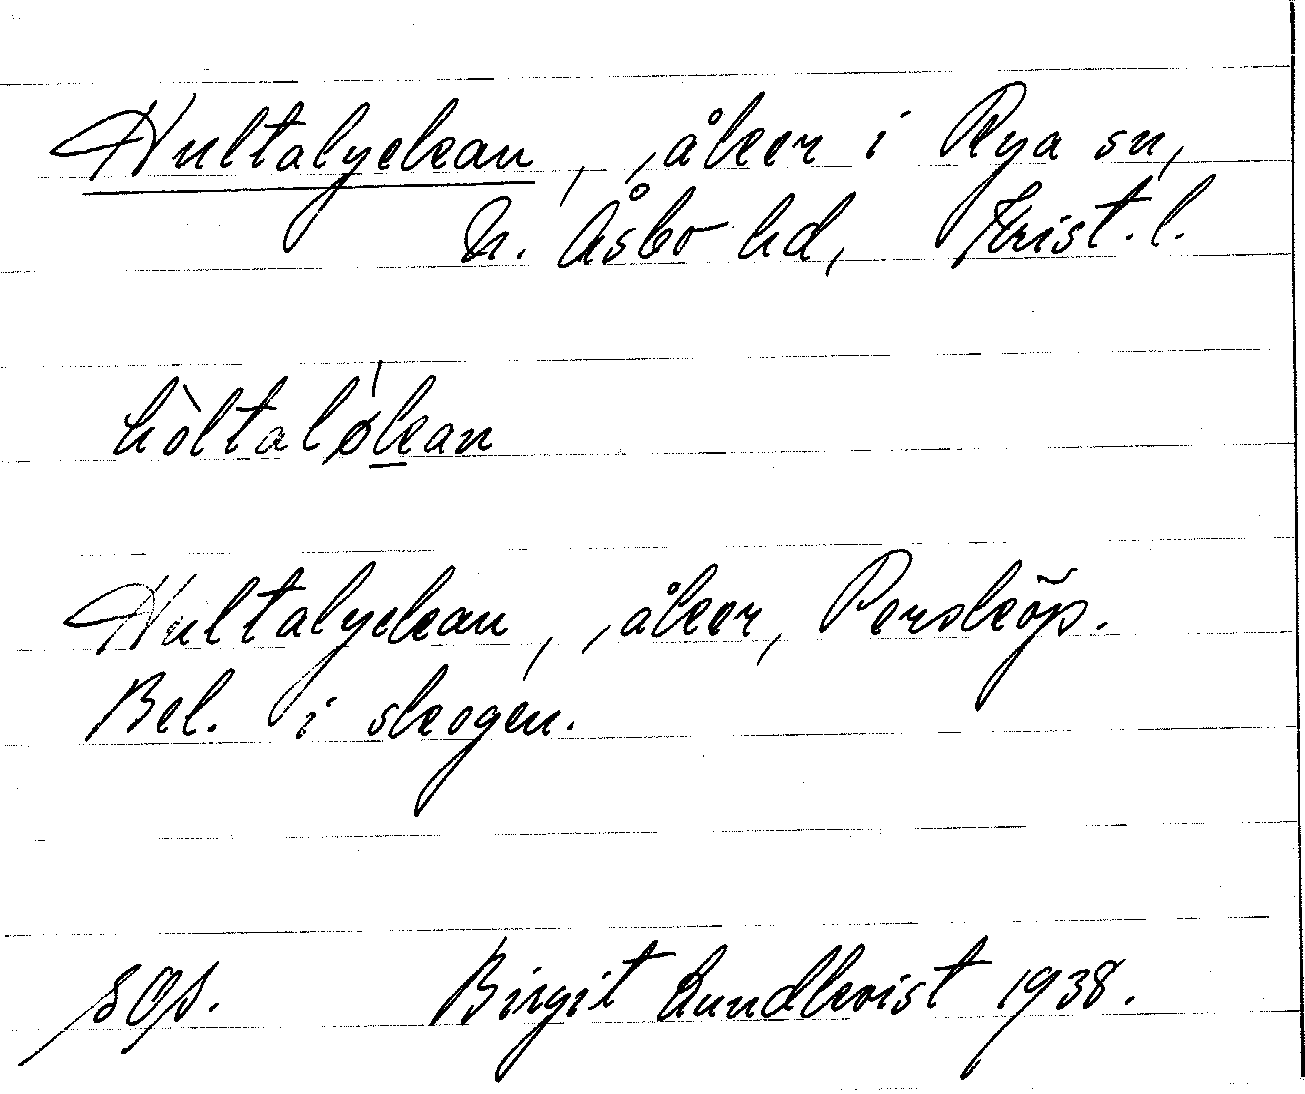 Hultalyckan, åker i Rya sn,
N. Åsbo hd, Krist. l.
hòltaløkan
Hultalyckan, åker, Persköp.
Bel. i skogen.
Birgit Lundkvist 1938.